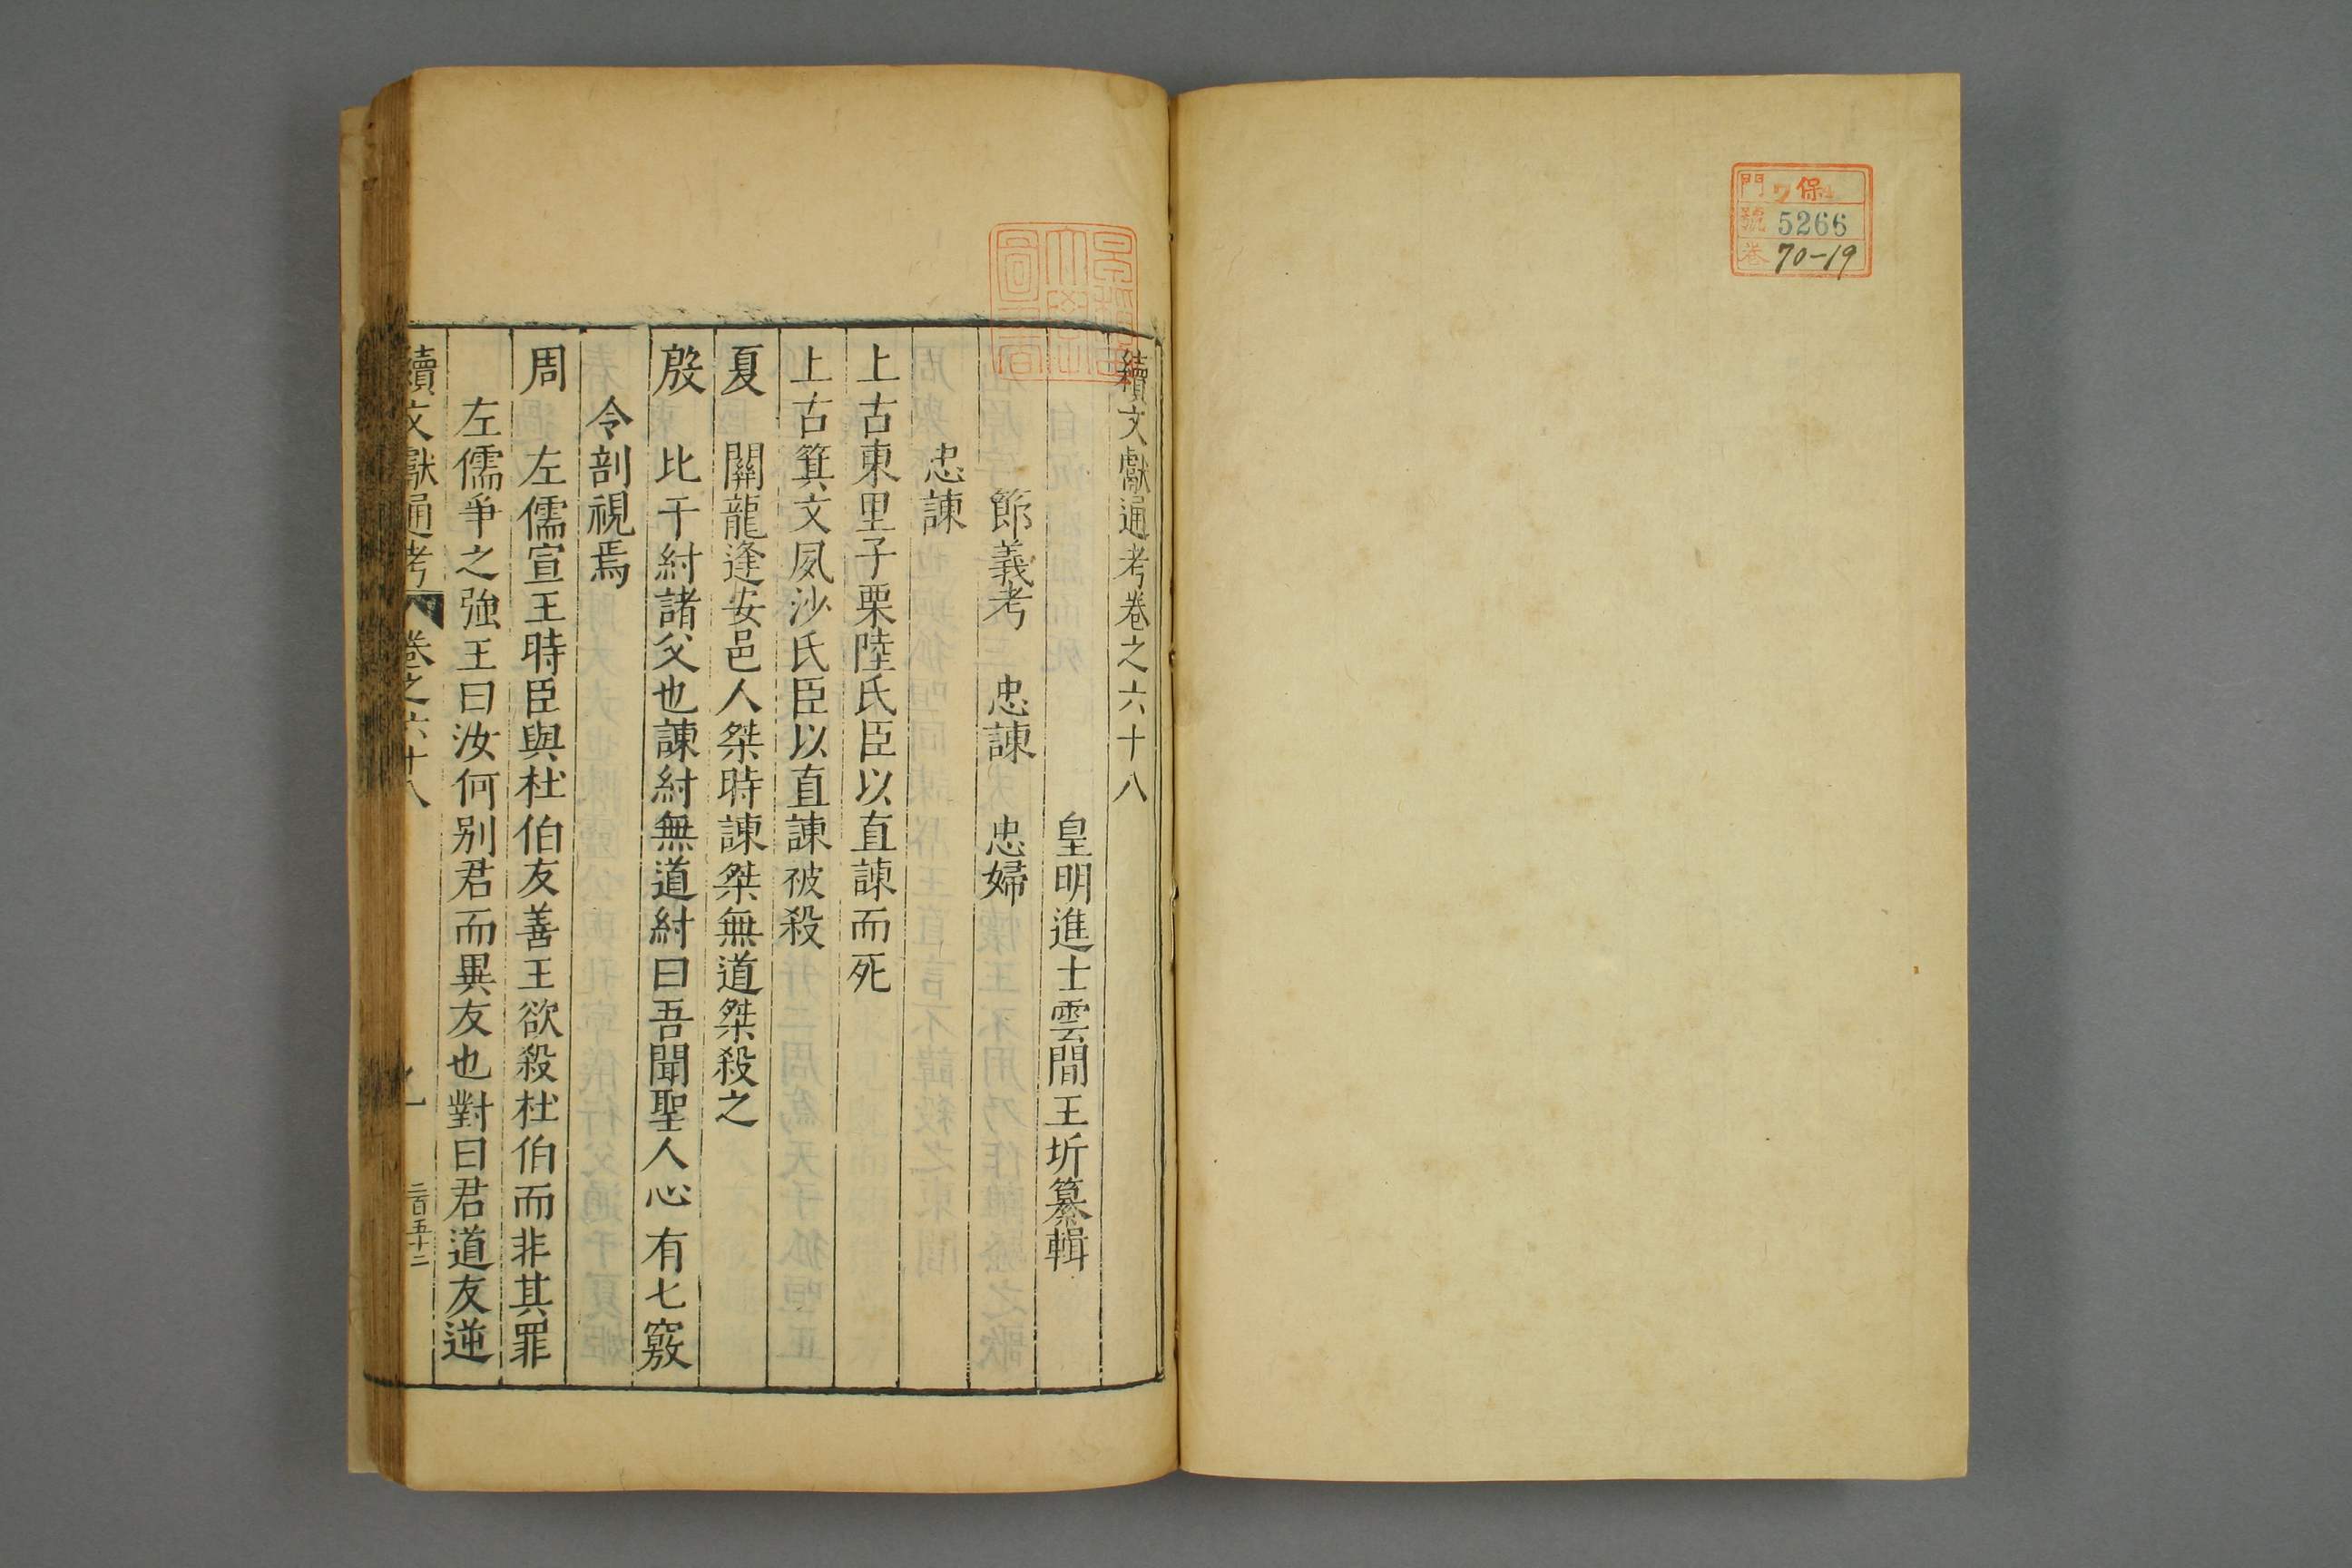 門 保
號 5266
卷 70-19
續文獻通考卷之六十八
皇明進士雲間王圻纂輯
節義考 忠諫 忠婦
忠諫
上古東里子栗陸氏臣以直諫而死
上古箕文夙沙氏臣以直諫被殺
夏 關龍逢安邑人桀時諫桀無道桀殺之
殷 比干紂諸父也諫紂無道紂曰吾聞聖人心有七竅
令剖視焉
周 左儒宣王時臣與杜伯友善王欲殺杜伯而非其罪
左儒爭之強王曰汝何别君而異友也對曰君道友逆
續文獻通考 卷之六十八 一 二百五十二